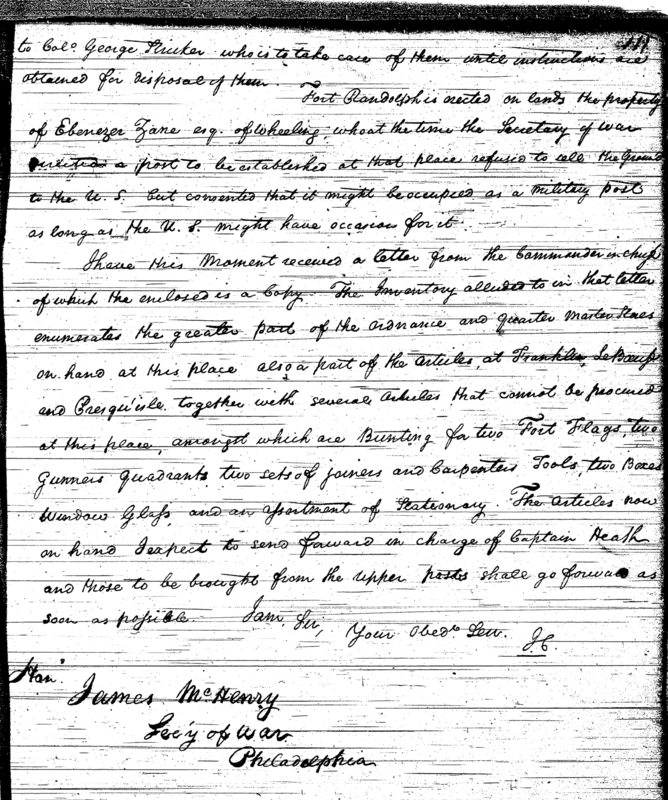 to Colo. George Stricker who is to take care of them until instructions are
obtained for disposal of them.
Fort Randolph is erected on lands the property
of Ebenezer Zane esq. of Wheeling, who at the time the Secretary of War
a post to be established at that place refused to sell the Ground
to the U.S. but consented that it might be occupied as a military post
as long as the U.S. might have occasion for it.
I have this moment received a letter from the Commander in chief
of which the enclosed is a Copy. The Inventory alluded to in that letter
enumerates the greater part of the ordnance and quarter Master Stores
on hand at this place also a part of the articles at Franklin, Le Bœuf
and Presqu'isle together with several Articles that cannot be procured
at this place, amongst which are Bunting for two Fort Flags, two
Gunners quadrants two sets of joiners and Carpenters Tools, two Boxes
Window Glass, and an assortment of Stationary. The articles now
on hand I expect to send forward in charge of Captain Heath
and those to be brought from the upper posts shall go forward as
soon as possible. I am, Sir,
Your Obedt. Serv.
J.C
Hon'
James McHenry
Sec'y of War
Philadelphia